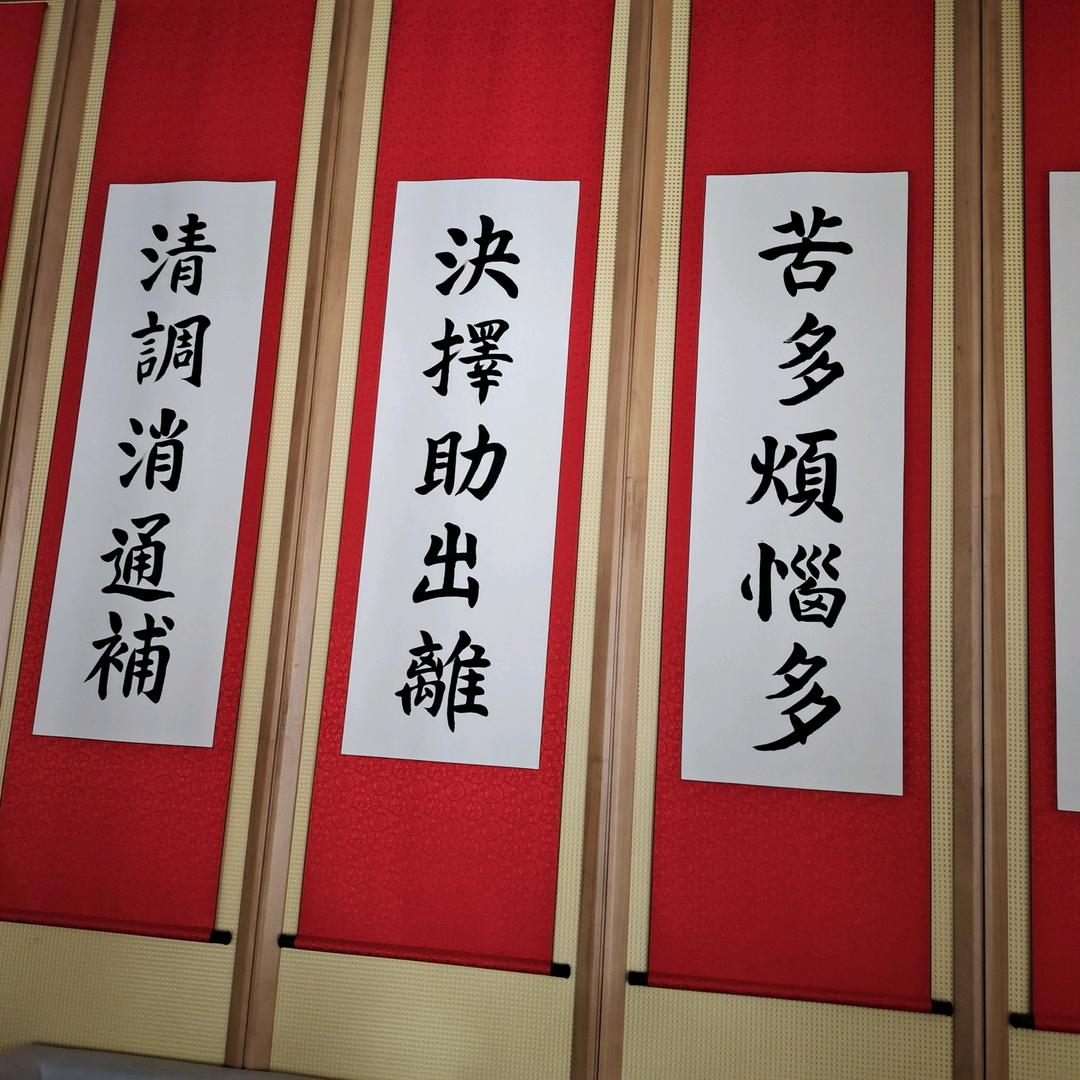 苦多煩惱多
決擇助出離
清調消通補